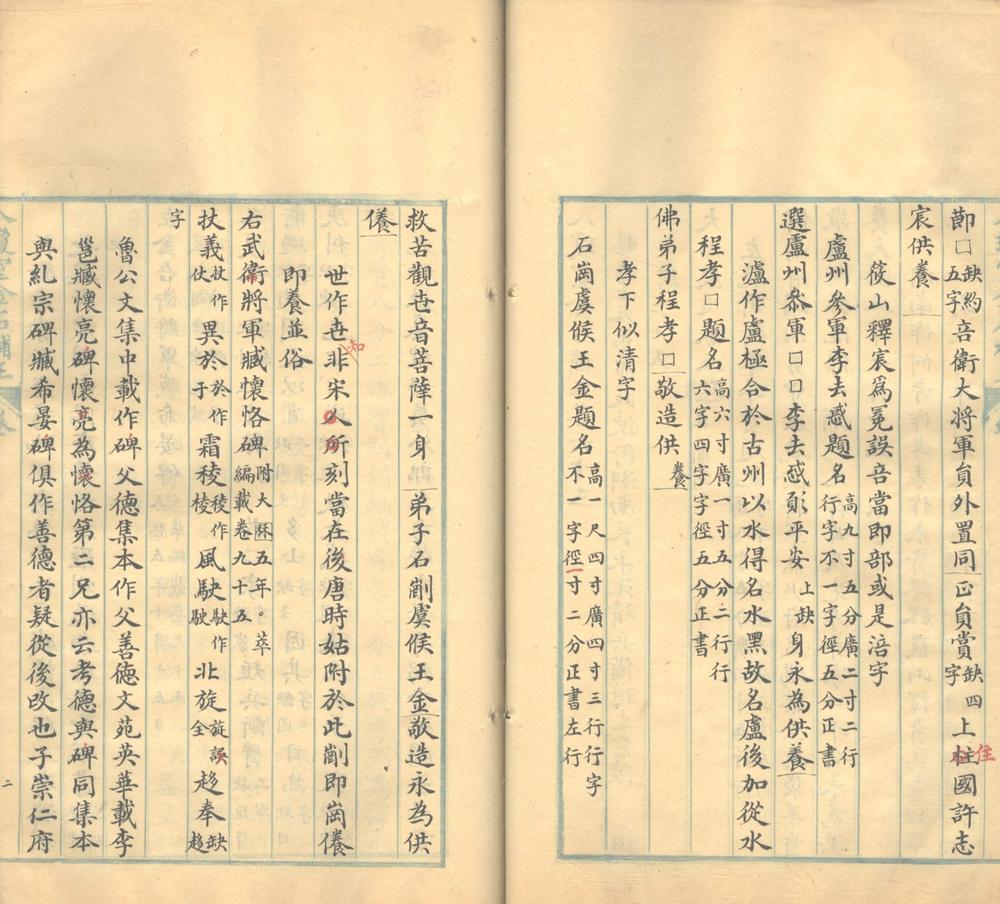 莭□缺約五字咅衛大将軍員外置同㱏員賞缺四字上柱國許志
住
宸供養
筱山釋宸爲冕誤咅當即部或是涪字
盧州參軍李去惑題名高九寸五分廣二寸二行行字不一字徑五分正書
選盧州叅軍□□李去惑願平安上缺身永為供養
瀘作盧極合於古州以水得名水黑故名盧後加從水
程孝□題名高六寸廣一寸五分二行行六字四字字徑五分正書
佛弟子程孝□敬造供養
孝下似清字
石崗虞候王金題名高一尺四寸廣四寸三行行字不一字徑一寸二分正書左行
救苦觀世音菩薩一身弟子石㓻虞候王金敬造永為供
㒑
世作卋非宋人所刻當在後唐時姑附於此㓻即崗㒑
知
即養並俗
右武衛將軍臧懷恪碑附大厤五年。萃編載卷九十五
扙義扙作仗異於於作于霜稜稜作棱風駛駛作駛北旋旋誤全趍奉缺趍
字
魯公文集中載作碑父德集本作父善德文苑英華載李
邕臧懷亮碑懷亮為懷恪第二兄亦云考德與碑同集本
與糺宗碑臧希晏碑俱作善德者疑從後改也子崇仁府
二